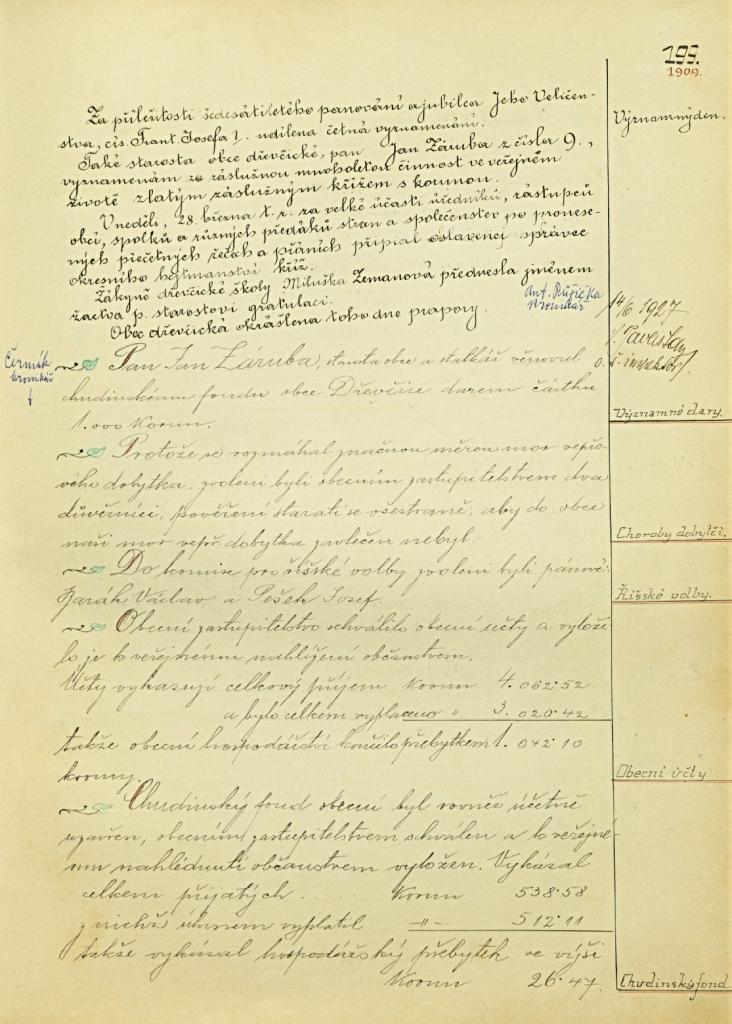 199.
1909.
Významný den.
Za příležitosti šedesátiletého panování a jubilea Jeho Veličen-
stva, cís. Frant. Josefa I. udílena četná vyznamenání.
Také starosta obce dřevčické, pan Jan Záruba z čísla 9.,
vyznamenám za záslužnou mnoholetou činnost ve veřejném
životě zlatým záslužným křížem s korunou.
V neděli, 28. března t. r. za velké účasti úředníků, zástupců
obcí, spolků a různých předáků stran a společenstev po pronese-
ných pěčetných řečech a přáních připial oslavenci správce
okresního hejtmanství kříž.
Žákyně dřevčické školy Miluška Zemanová přednesla jménem
žactva p. starostovi gratulaci.
Obec dřevčická okrášlena toho dne prapory.
Ant. Růžička
kronikář
14/6 1927
o. š. inspektor.
Čermák
kronikář
Pan Jan Záruba, starosta obce a statkář věnoval
chudinskému fondu obce Dřevčice darem částku
1.000 korun.
Významné dary.
Protože se rozmáhal značnou měrou mor vepřo-
vého dobytka, zvoleni byli obecním zastupitelstvem dva
důvěrníci, pověření starati se všestraně, aby do obce
naší mor vepř. dobytka zavlečen nebyl.
Choroby dobytčí.
Do komise pro říšské volby zvoleni byli pánové:
Barák Václav a Pešek Josef.
Říšské volby.
Obecní zastupitelstvo schválilo obecní účty a vylože
lo je k veřejnému nahlížení občanstvem.
Účty vykazují celkový příjem korun 4.062·52
a bylo celkem vyplaceno " 3.020·42
takže obecní hospodářství končilo přebytkem 1.042·10
koruny.
Obecní účty.
Chudinský fond obecní byl rovněž účetně
uzavřen, obecním zastupitelstvem schválen a k veřejné-
mu nahlédnutí občanstvem vyložen. Vykázal
celkem přijatých . korun 538·58
z nichž úhrnem vyplatil —"— 512·11
takže vykázal hospodářský přebytek ve výši
korun 26·47.
Chudinský fond